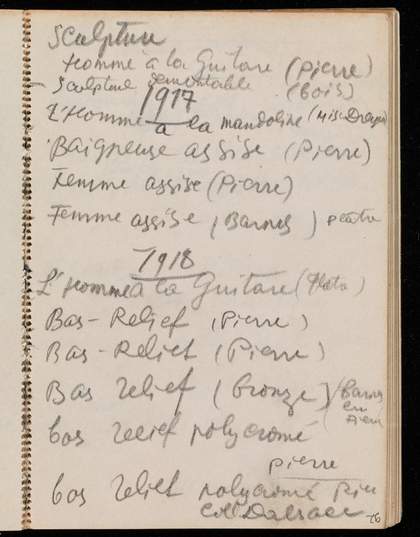 Sculpture
Homme à la Guitare (Pierre)
Sculpture demontable (Bois)
1917
L'Homme à la mandoline (Miss Dreier)
Baigneuse assise (Pierre)
Femme assise (Pierre)
Femme assise (Barnes)
1918
L'Homme à la Guitare
Bas-Relief (Pierre)
Bas-Relief (Pierre)
Bas relief (bronze) (Barnes
en
bas relief polycromé
pierre
bas relief polycromé
Dalsace
76